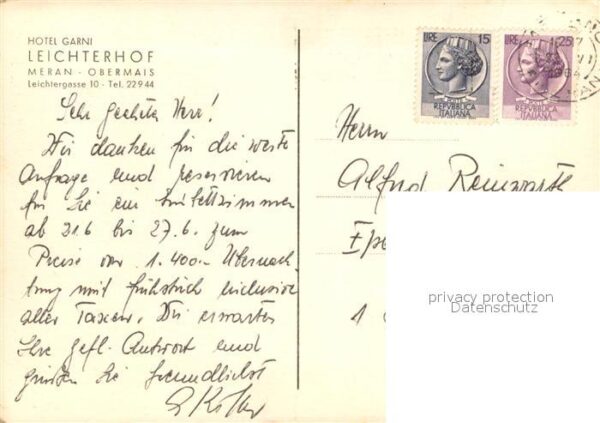 HOTEL GARNI
LEICHTERHOF
MERAN - OBERMAIS
Leichtergasse 10 - Tel. 22944
Sehr geehrter Herr!
Wir danken für die werte
Anfrage und reservieren
für Sie ein
ab 21.6 bis 27.6. zum
Preise von 1.400.- Übernach
tung mit Frühstück inclusive
aller Taxen. Wir erwarten
Ihre gefl. Antwort und
grüßen Sie freundlichst
LIRE 15
POSTE
REPVBBLICA
ITALIANA
LIRE 25
POSTE
REPVBBLICA
ITALIANA
1964
Herrn
Alfred Reinwarth
privacy protection
Datenschutz